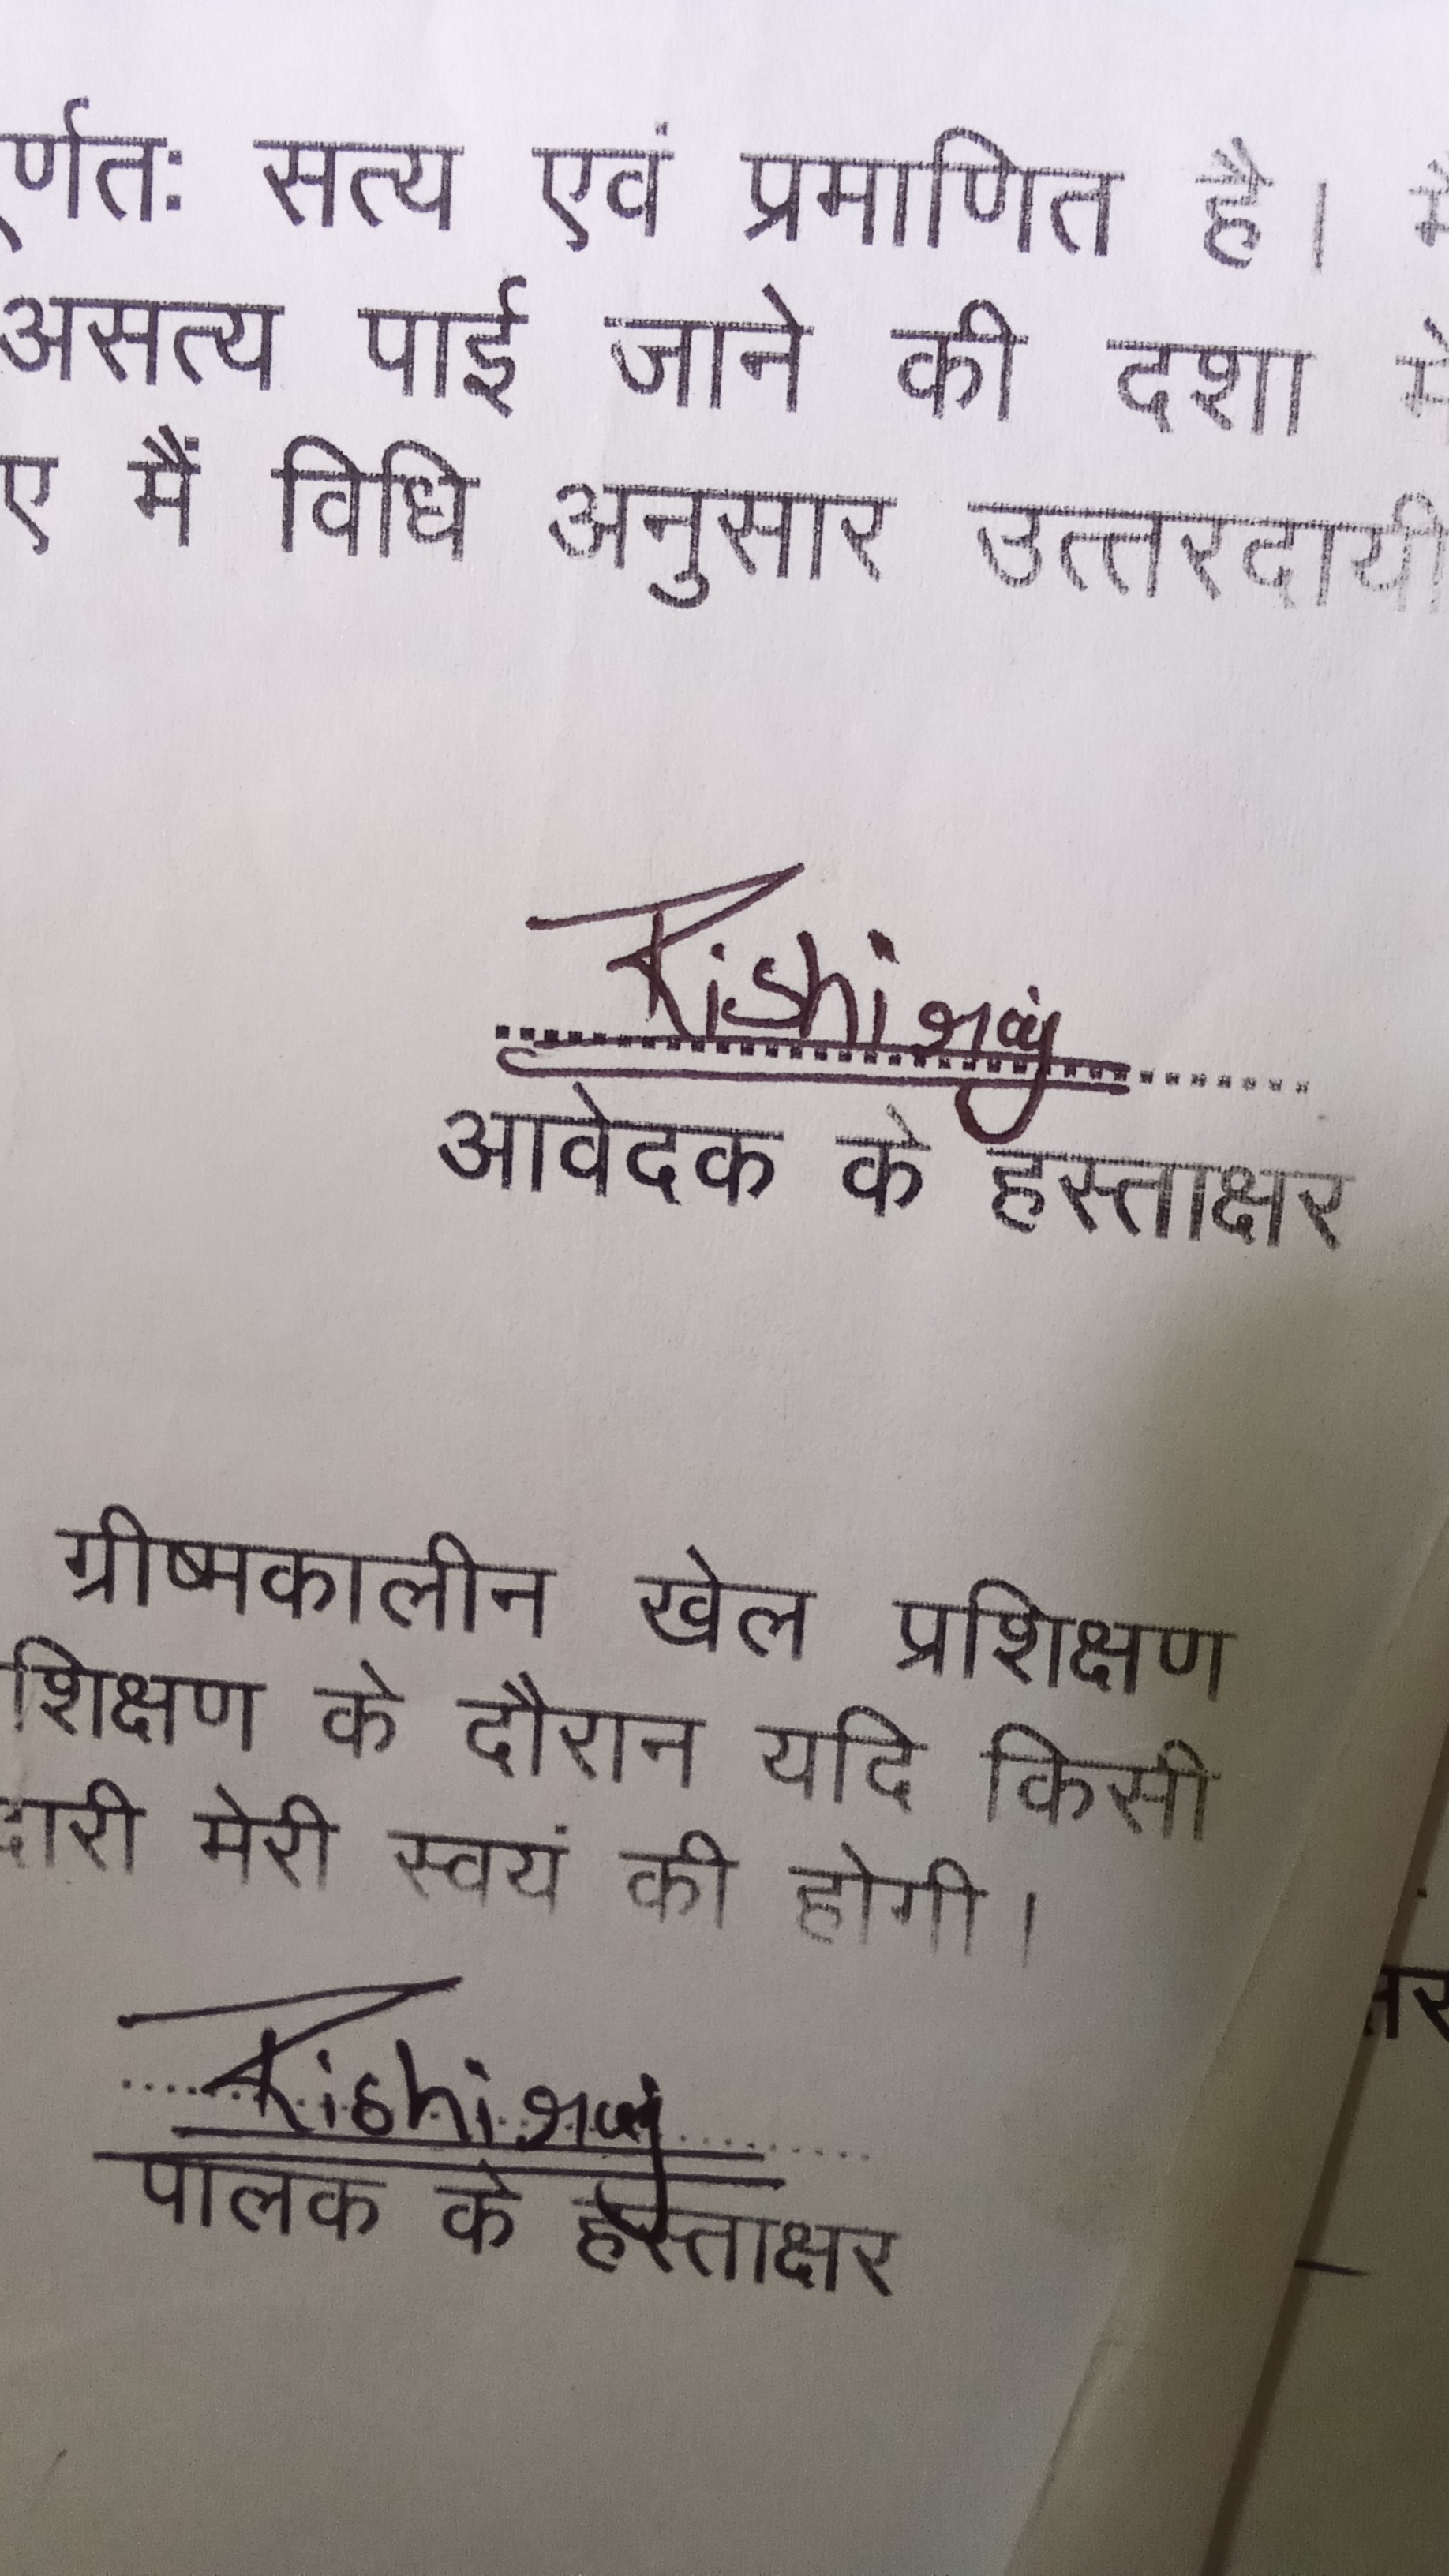 र्णतः सत्य एवं प्रमाणित है। मै
असत्य पाई जाने की दशा मे
ए मैं विधि अनुसार उत्तरदायी
Rishiraj
आवेदक के हस्ताक्षर
ग्रीष्मकालीन खेल प्रशिक्षण
शिक्षण के दौरान यदि किसी
दारी मेरी स्वयं की होगी।
Rishiraj
पालक के हस्ताक्षर